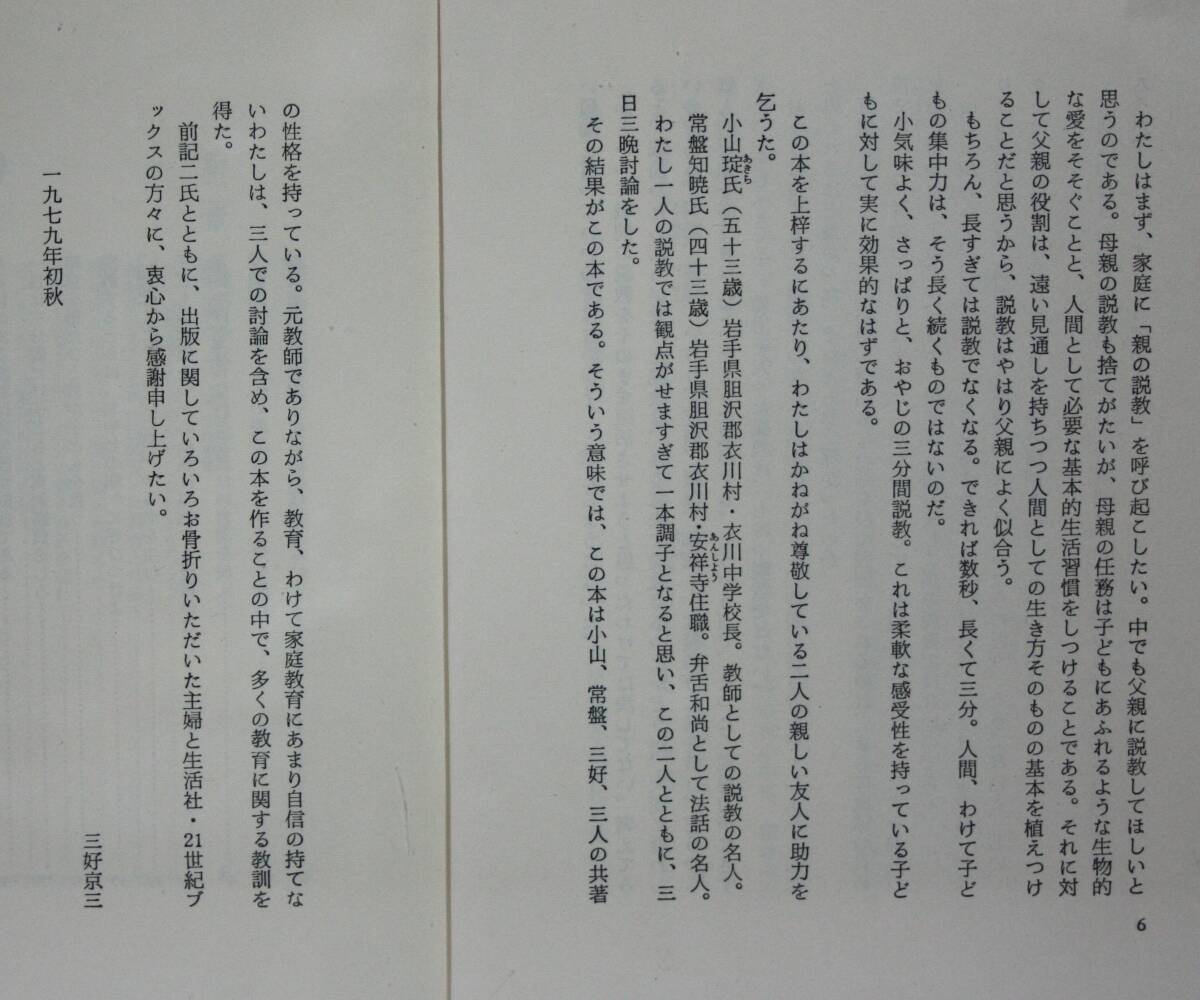 わたしはまず、家庭に「親の説教」を呼び起こしたい。中でも父親に説教してほしいと
思うのである。母親の説教も捨てがたいが、母親の任務は子どもにあふれるような生物的
な愛をそそぐことと、人間として必要な基本的生活習慣をしつけることである。それに対
して父親の役割は、遠い見通しを持ちつつ人間としての生き方そのものの基本を植えつけ
ることだと思うから、説教はやはり父親によく似合う。
もちろん、長すぎては説教でなくなる。できれば数秒、長くて三分。人間、わけて子ど
もの集中力は、そう長く続くものではないのだ。
小気味よく、さっぱりと、おやじの三分間説教。これは柔軟な感受性を持っている子ど
もに対して実に効果的なはずである。
この本を上梓するにあたり、わたしはかねがね尊敬している二人の親しい友人に助力を
乞うた。
小山琔氏（五十三歳）岩手県胆沢郡衣川村・衣川中学校長。教師としての説教の名人。
あきら
常盤知暁氏（四十三歳）岩手県胆沢郡衣川村・安祥寺住職。弁舌和尚として法話の名人。
あんしょう
わたし一人の説教では観点がせますぎて一本調子となると思い、この二人とともに、三
日三晩討論をした。
その結果がこの本である。そういう意味では、この本は小山、常盤、三好、三人の共著
6
の性格を持っている。元教師でありながら、教育、わけて家庭教育にあまり自信の持てな
いわたしは、三人での討論を含め、この本を作ることの中で、多くの教育に関する教訓を
得た。
前記二氏とともに、出版に関していろいろお骨折りいただいた主婦と生活社・21世紀ブ
ックスの方々に、衷心から感謝申し上げたい。
三好京三
一九七九年初秋